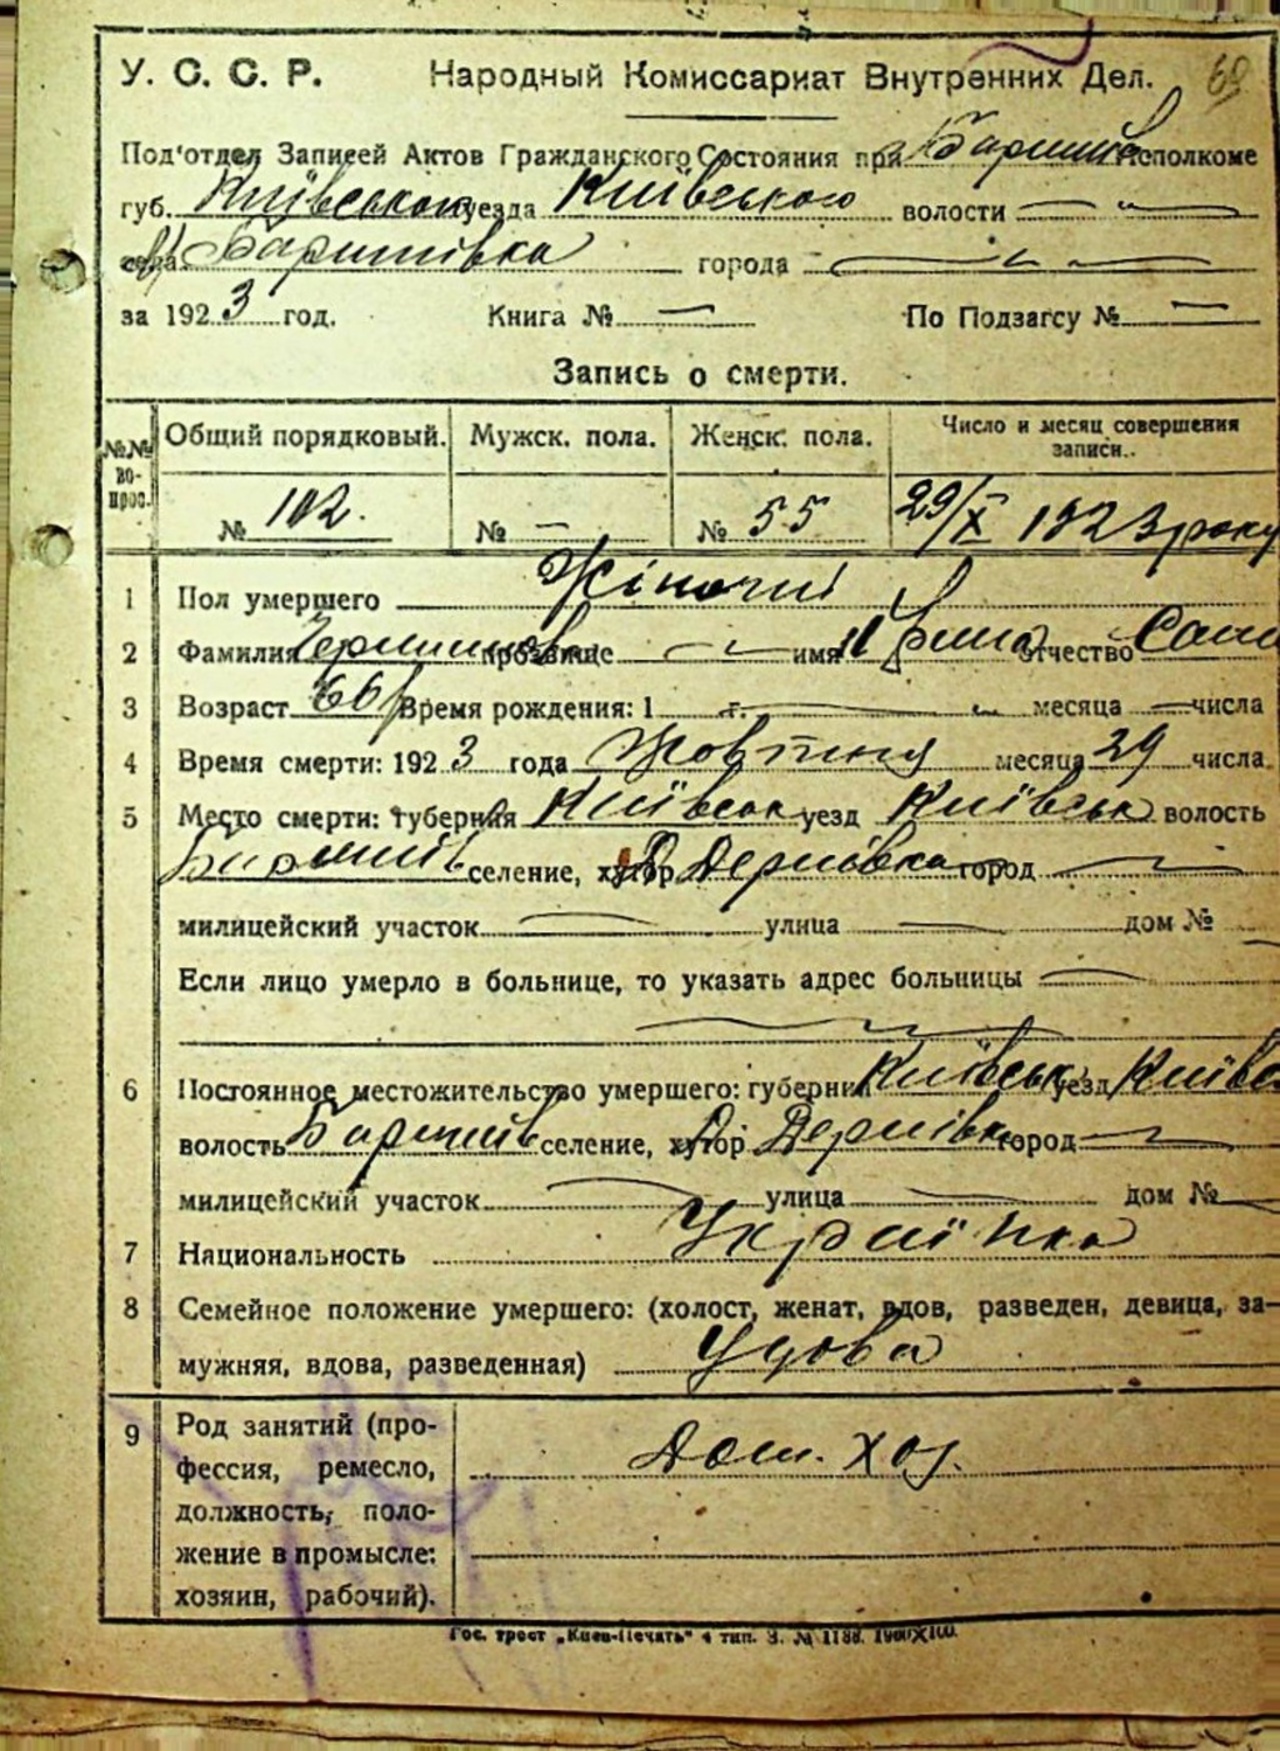 У. С. С. Р. Народный Комиссариат Внутренних Дел. 69
Под'отдел Записей Актов Гражданского Состояния при Баришів Исполкоме
губ. Київською уезда Київського волости —
села Баришівка города —
за 1923 год. Книга № — По Подзагсу № —
Запись о смерти.
№№ вопрос. Общий порядковый. Мужск. пола. Женск. пола. Число и месяц совершения записи.
№ 102. № — № 55 29/X 1923 року
1 Пол умершего Жіночий
2 Фамилия прозвище — имя отчество
3 Возраст 66 Время рождения: 1 — г. — месяца — числа
4 Время смерти: 1923 года Жовтня месяца 29 числа
5 Место смерти: губерния Київськ уезд Київськ волость
Баришів селение, хутор Дернівка город —
милицейский участок — улица — дом №
Если лицо умерло в больнице, то указать адрес больницы —
—
6 Постоянное местожительство умершего: губерния Київськ уезд Київсь
волость Баришів селение, хутор Дернівка город —
милицейский участок — улица — дом № —
7 Национальность Українка
8 Семейное положение умершего: (холост, женат, вдов, разведен, девица, за-
мужняя, вдова, разведенная) Удова
9 Род занятий (про-
фессия, ремесло, Дом. хоз.
должность, поло-
жение в промысле:
хозяин, рабочий).
Гос. трест „Киев-Печать" 4 тип. З. № 1188. 1900X100.